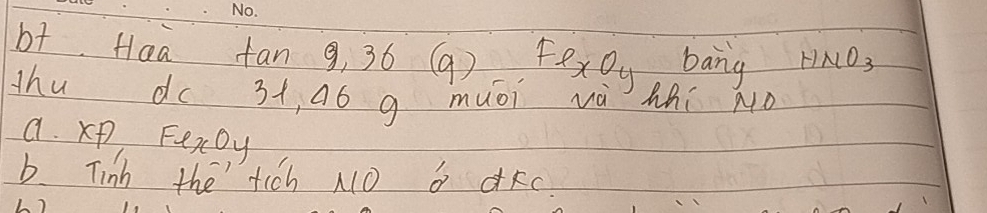 No.
bt. Hoà tan 9,36 (g) FexOy bằng HNO3
thu dc 31,46 g muối và khí NO
a. XĐ FexOy
b. Tính thể tích NO ở đkc.